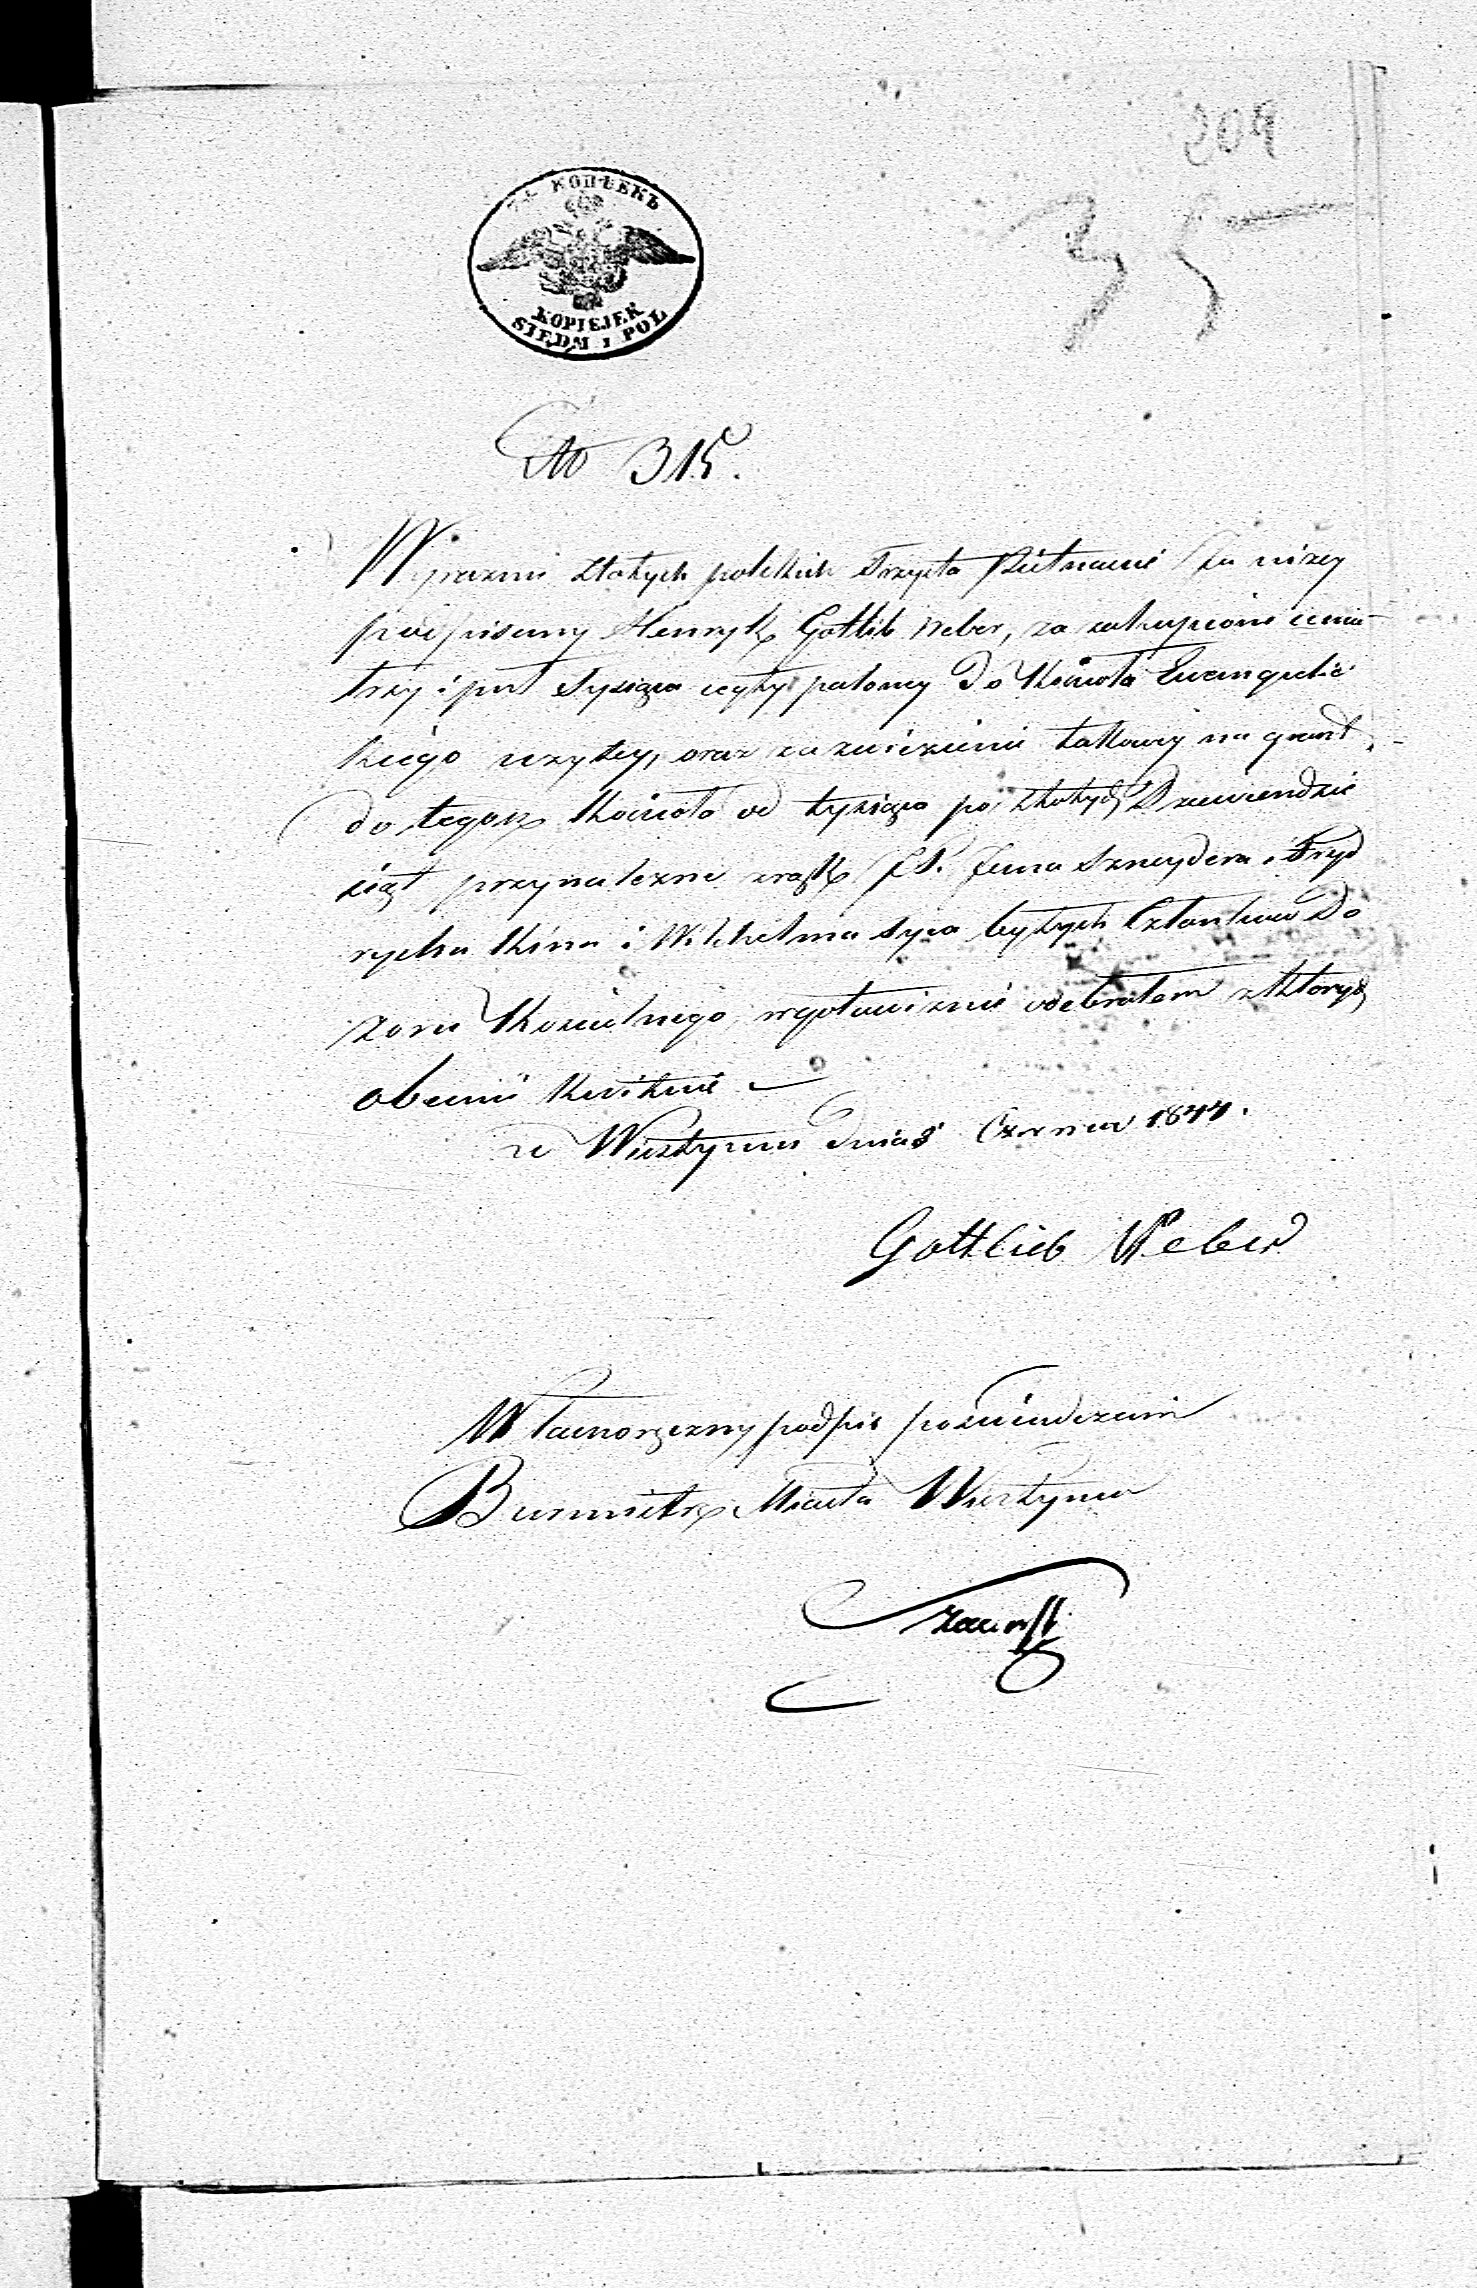 35
КОПѢЕКЪ
KOPIEJEK
SIEDM i PÓŁ
315.
Wyraznie złotych polskich Trzysta Pietnascie Ja niżey
podpisany Henryk Gottlib Weber, za zakupione
trzy i puł Tysiąca cegły paloney do Kościoła Evangelic
kiego użytey, oraz za zwiezienie takowey na grunt
do tegoż Kościoła od tysiąca po złotych Dziewiendzie
siąt przynależne z rąk Jana Sznejdera i Fryd
rycha Kina i Wilhelma byłych Członków Do
zoru Kościelnego, w gotowiznie odebrałem z których
obecnie kwituie
w Wisztyncu dnia 8 Czerwca 1844.
Gottlieb Weber
Własnoręczny podpis poświadczam
Burmistrz Miasta Wisztynca